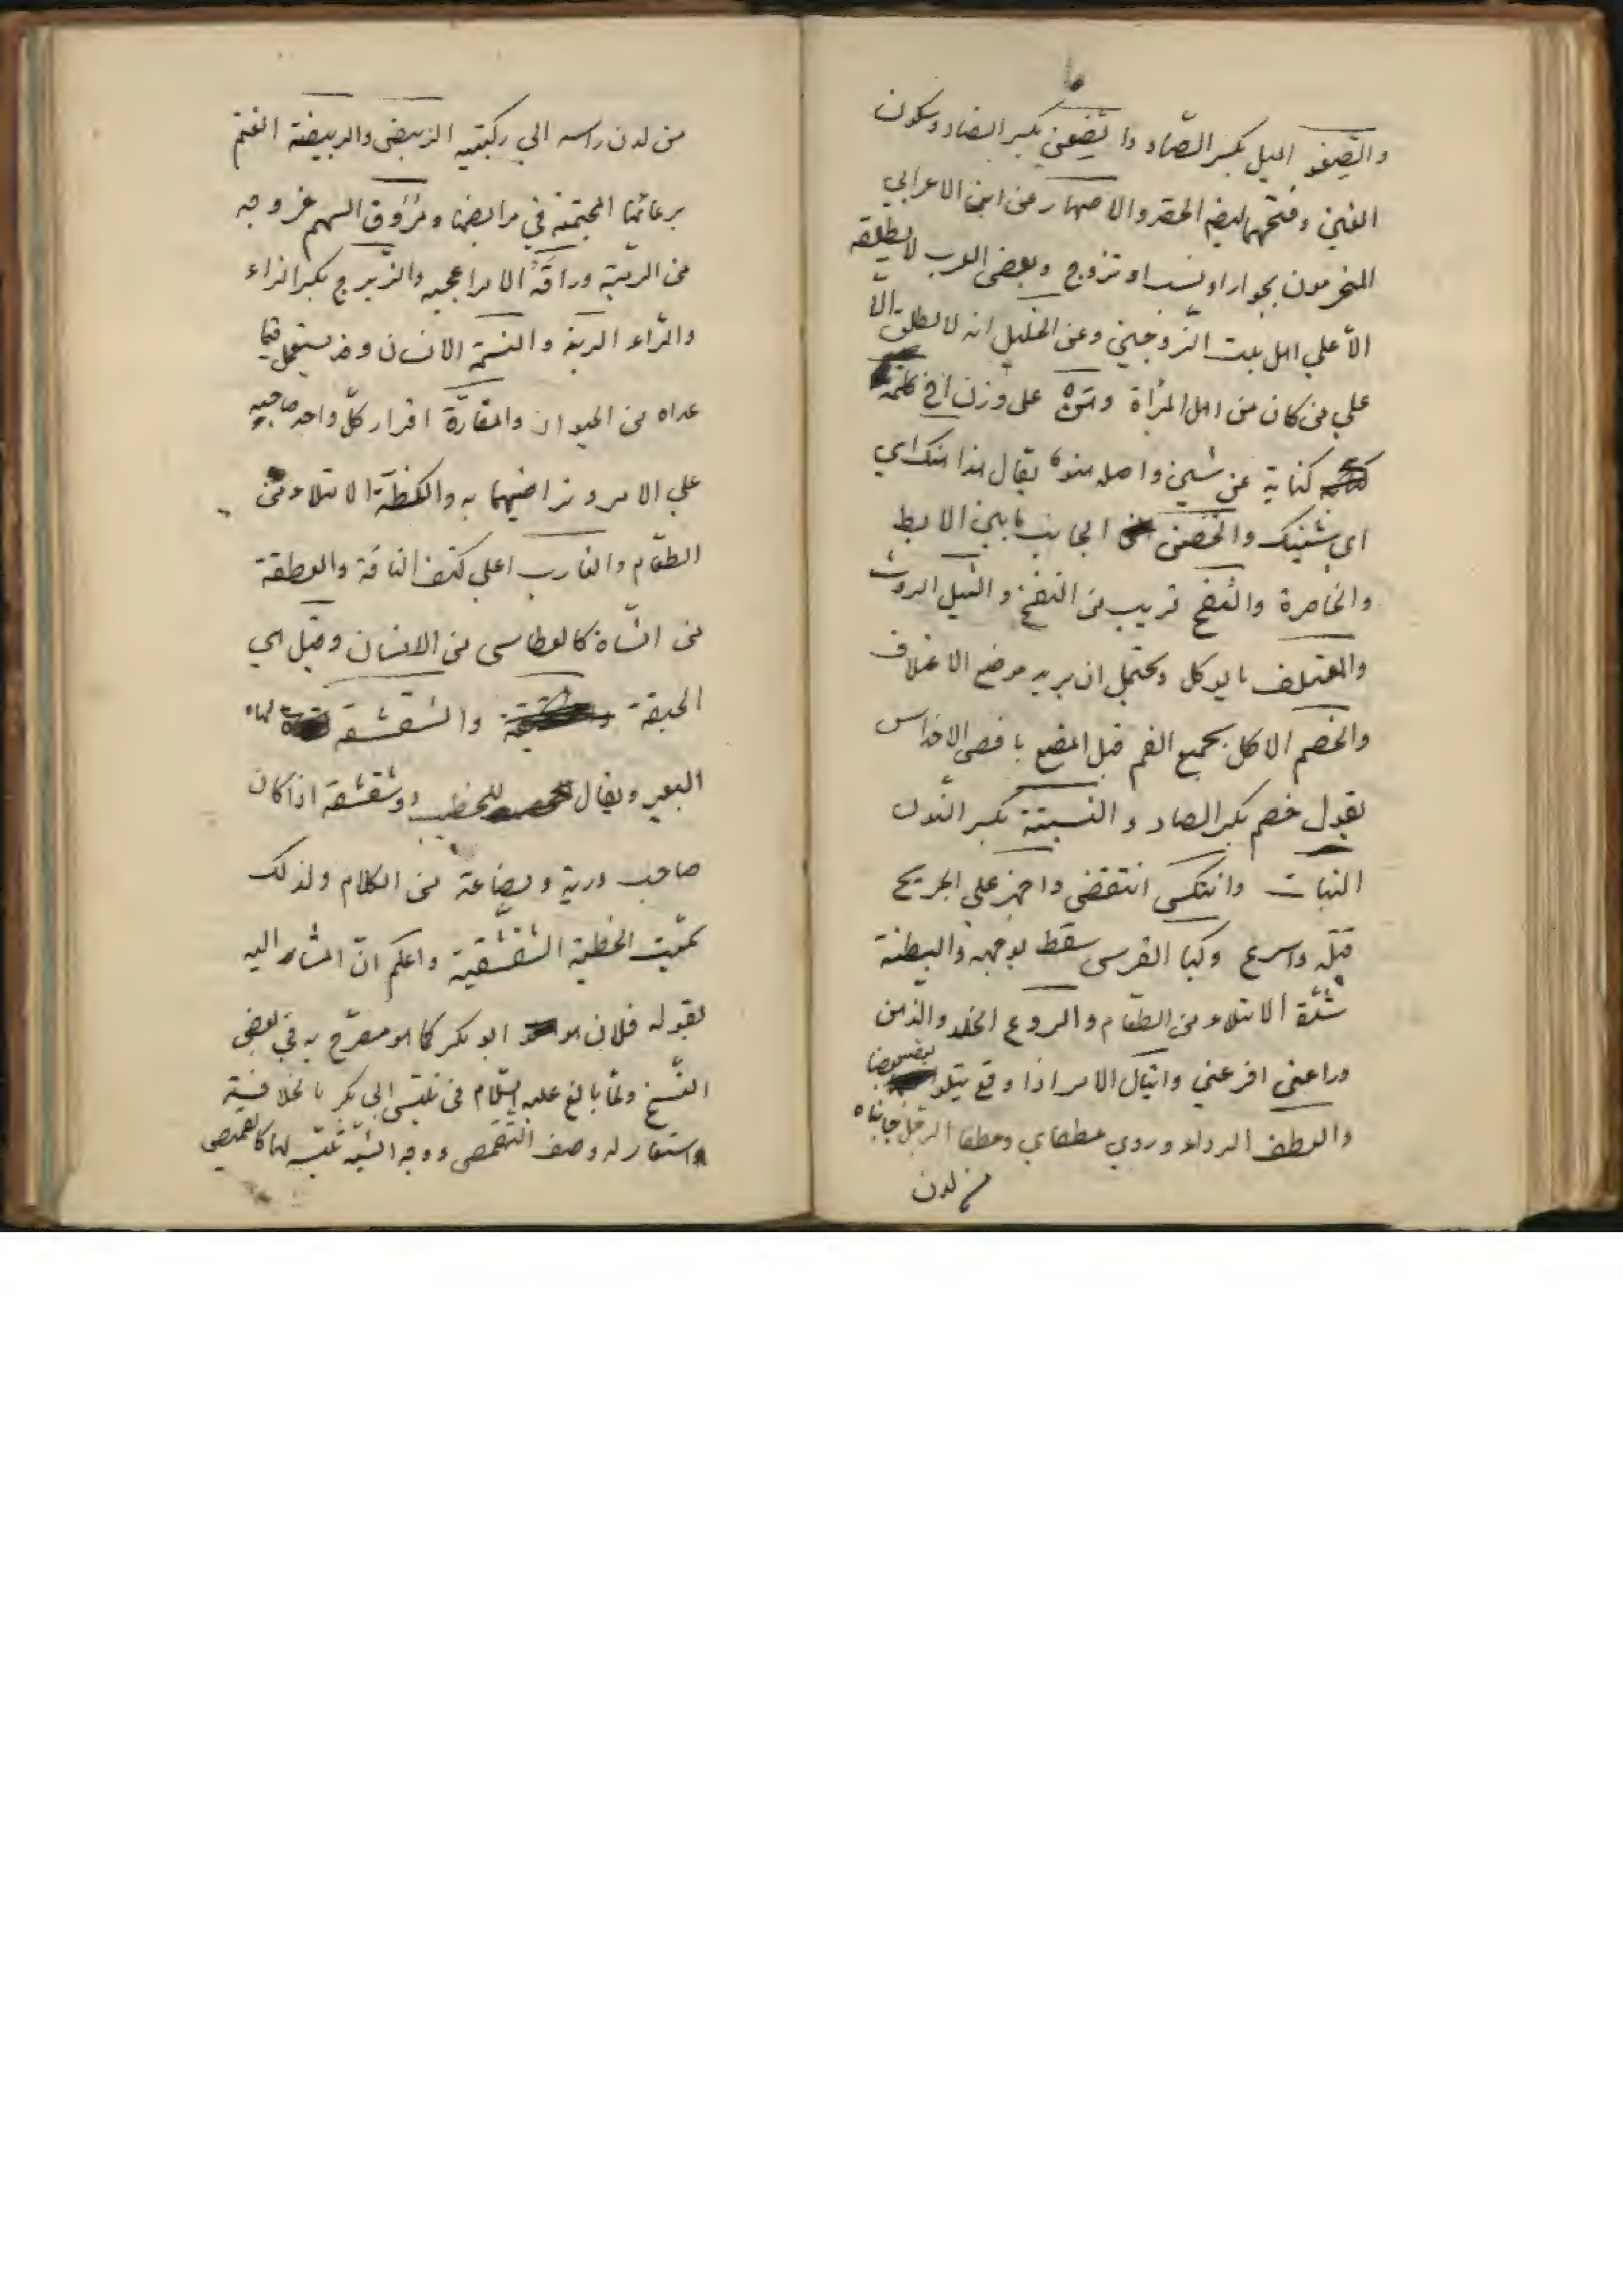 والصغو الميل بكسر الصّاد والضِّغن بكسر الضاد وسكون
الغين وفتحهما ايضا الحقد والاصهار عن ابن الاعرابي
المتحرمون بجوار او نسب او تزوج وبعض العرب لا يطلقه
الّا علي اهل بيت الزّوجين وعن الخليل انه لا يطلق الّا
علي من كان من اهل المرأة وهن على وزن اخ كلمة
كناية عن شيئ واصله هنو يقال هذا هنك اي
اي شيئك والحضن الجانب ما بين الابط
والخاصرة والنفج قريب من النفخ والنثيل الروث
والمعتلف ما يوكل ويحتمل ان يريد موضع الاعتلاف
والخضم الاكل بجميع الفم قبل المضغ باقصى الاضراس
يقول خضم بكسر الضاد والنبتة بكسر النّون
النبات وانتكس انتقض واجهز علي الجريح
قتله واسرع وكبا الفرس سقط بوجهه والبطنة
شدّة الامتلاء من الطعام والروع الخلد والذهن
وراعني افزعني وانثال الامر اذا وقع يتلو بعضه بعضا
والعطف الرداء وروي عطفاي وعطفا الرجل جانباه
من لدن
من لدن راسه الي ركبتيه الربيض والربيضة الغنم
برعاتها المجتمعة في مرابضها ومروق السهم خروجه
من الرميّة وراقه الامر اعجبه والزّبرج بكسر الزاء
والرّاء الزينة والنسمة الانسان وقد يستعمل فيما
عداه من الحيوان والمقارّة اقرار كلّ واحد صاحبه
علي الامر وتراضيهما به والكظّة الامتلاء من
الطعام والغارب اعلي كتف الناقة والعطفة
من الشاة كالعطاس من الانسان وقيل هي
الحبقة والشقشقة لهاه
البعير ويقال للخطيب ذو شقشقة اذا كان
صاحب دربة وبضاعة من الكلام ولذلك
سمّيت الخطبة الشقشقية واعلم انّ المشار اليه
بقوله فلان هو ابو بكر كما هو مصرّح به في بعض
النّسخ ولمّا بالغ عليه السّلام في تلبّس ابي بكر بالخلافة
واستعار له وصف التقمص ووجه الشّبه تلبّسه لها كالقميص